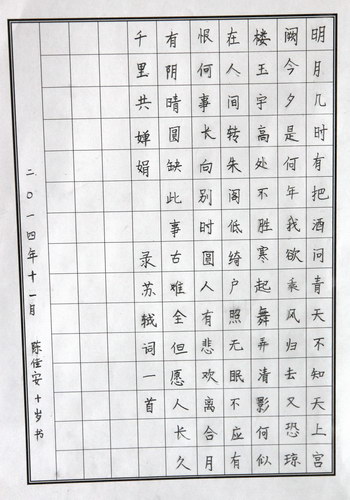 明月几时有把酒问青天不知天上宫
阙今夕是何年我欲乘风归去又恐琼
楼玉宇高处不胜寒起舞弄清影何似
在人间转朱阁低绮户照无眠不应有
恨何事长向别时圆人有悲欢离合月
有阴晴圆缺此事古难全但愿人长久
千里共婵娟 录苏轼词一首
二〇一四年十一月 陈佳安十岁书